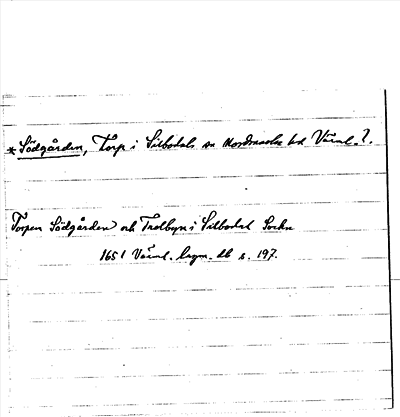 * Södgården, Torp i Silbodals sn Nordmarks hd Värml.?.
Torpen Södgården och Trolbyn i Silbodal Sockn
1651 Värml. lagm. db s. 197.